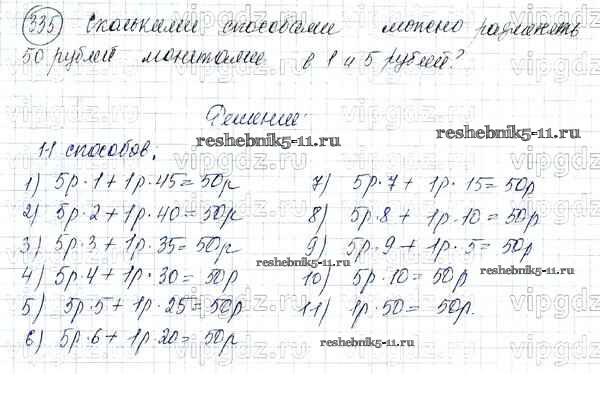 335 Сколькими способами можно разменять
50 рублей монетами в 1 и 5 рублей?
Решение:
reshebnik5-11.ru
reshebnik5-11.ru
11 способов.
1) 5р·1 + 1р·45 = 50р
2) 5р·2 + 1р·40 = 50р
3) 5р·3 + 1р·35 = 50р
4) 5р·4 + 1р·30 = 50р
5) 5р·5 + 1р·25 = 50р
6) 5р·6 + 1р·20 = 50р
7) 5р·7 + 1р·15 = 50р
8) 5р·8 + 1р·10 = 50р
9) 5р·9 + 1р·5 = 50р
10) 5р·10 = 50р
11) 1р·50 = 50р.
reshebnik5-11.ru
reshebnik5-11.ru
reshebnik5-11.ru
vipgdz.ru